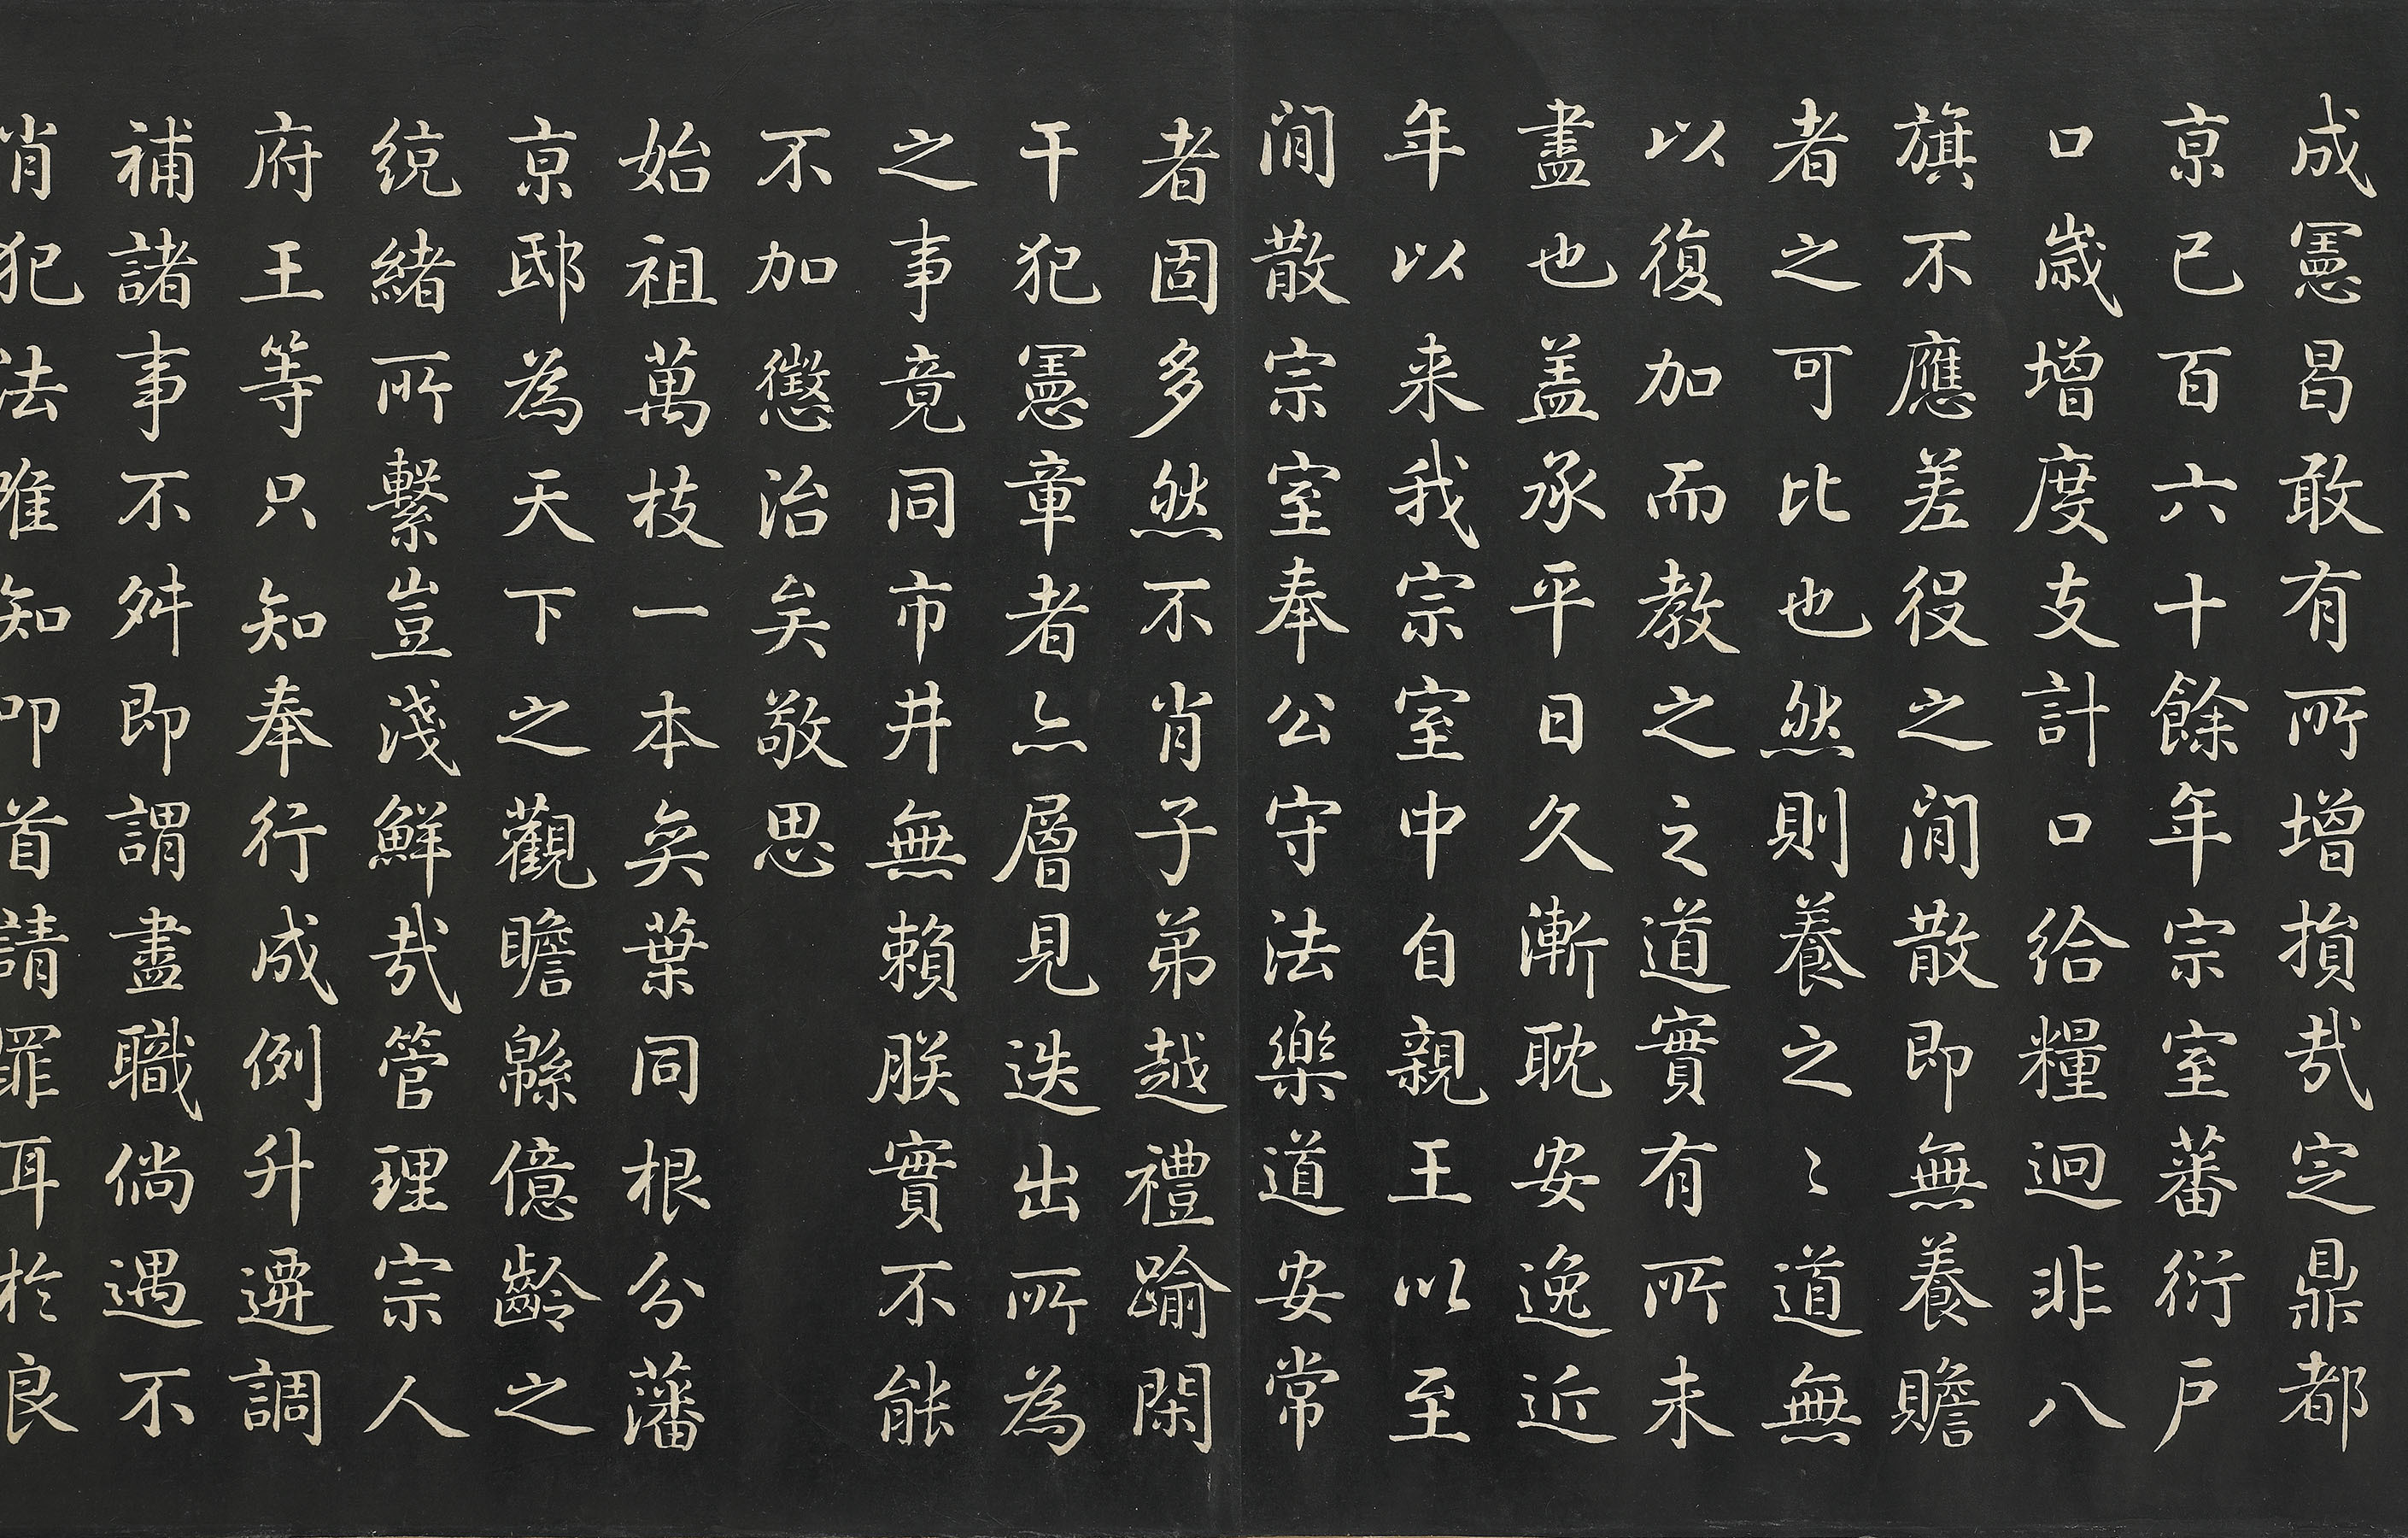 成憲曷敢有所增損㢤定鼎都
京已百六十餘年宗室蕃衍戶
口嵗增度支計口給糧迥非八
旗不應差役之閒散即無養贍
者之可比也然則養之〻道無
以復加而教之之道實有所未
盡也盖承平日久漸耽安逸近
年以来我宗室中自親王以至
閒散宗室奉公守法樂道安常
者固多然不肖子弟越禮踰閑
干犯憲章者亦層見迭出所為
之事竟同市井無賴朕實不能
不加懲治矣敬思
始祖萬枝一本奕葉同根分藩
京邸為天下之觀瞻緜億齡之
統緒所繫豈淺鮮㢤管理宗人
府王等只知奉行成例升遷調
補諸事不舛即謂盡職倘遇不
肖犯法唯知叩首請罪耳於良